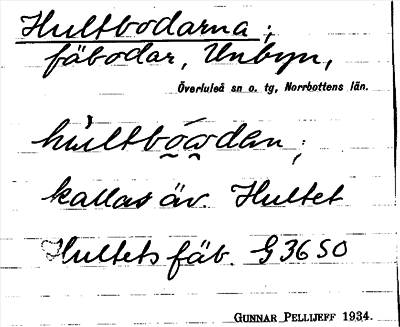 Hultbodarna;
fäbodar, Unbyn,
Överluleå sn o. tg, Norrbottens län.
hultbo͜ɷ͜dan;
kallas äv. Hultet
Hultets fäb. G 36 SO
GUNNAR PELLIJEFF 1934.